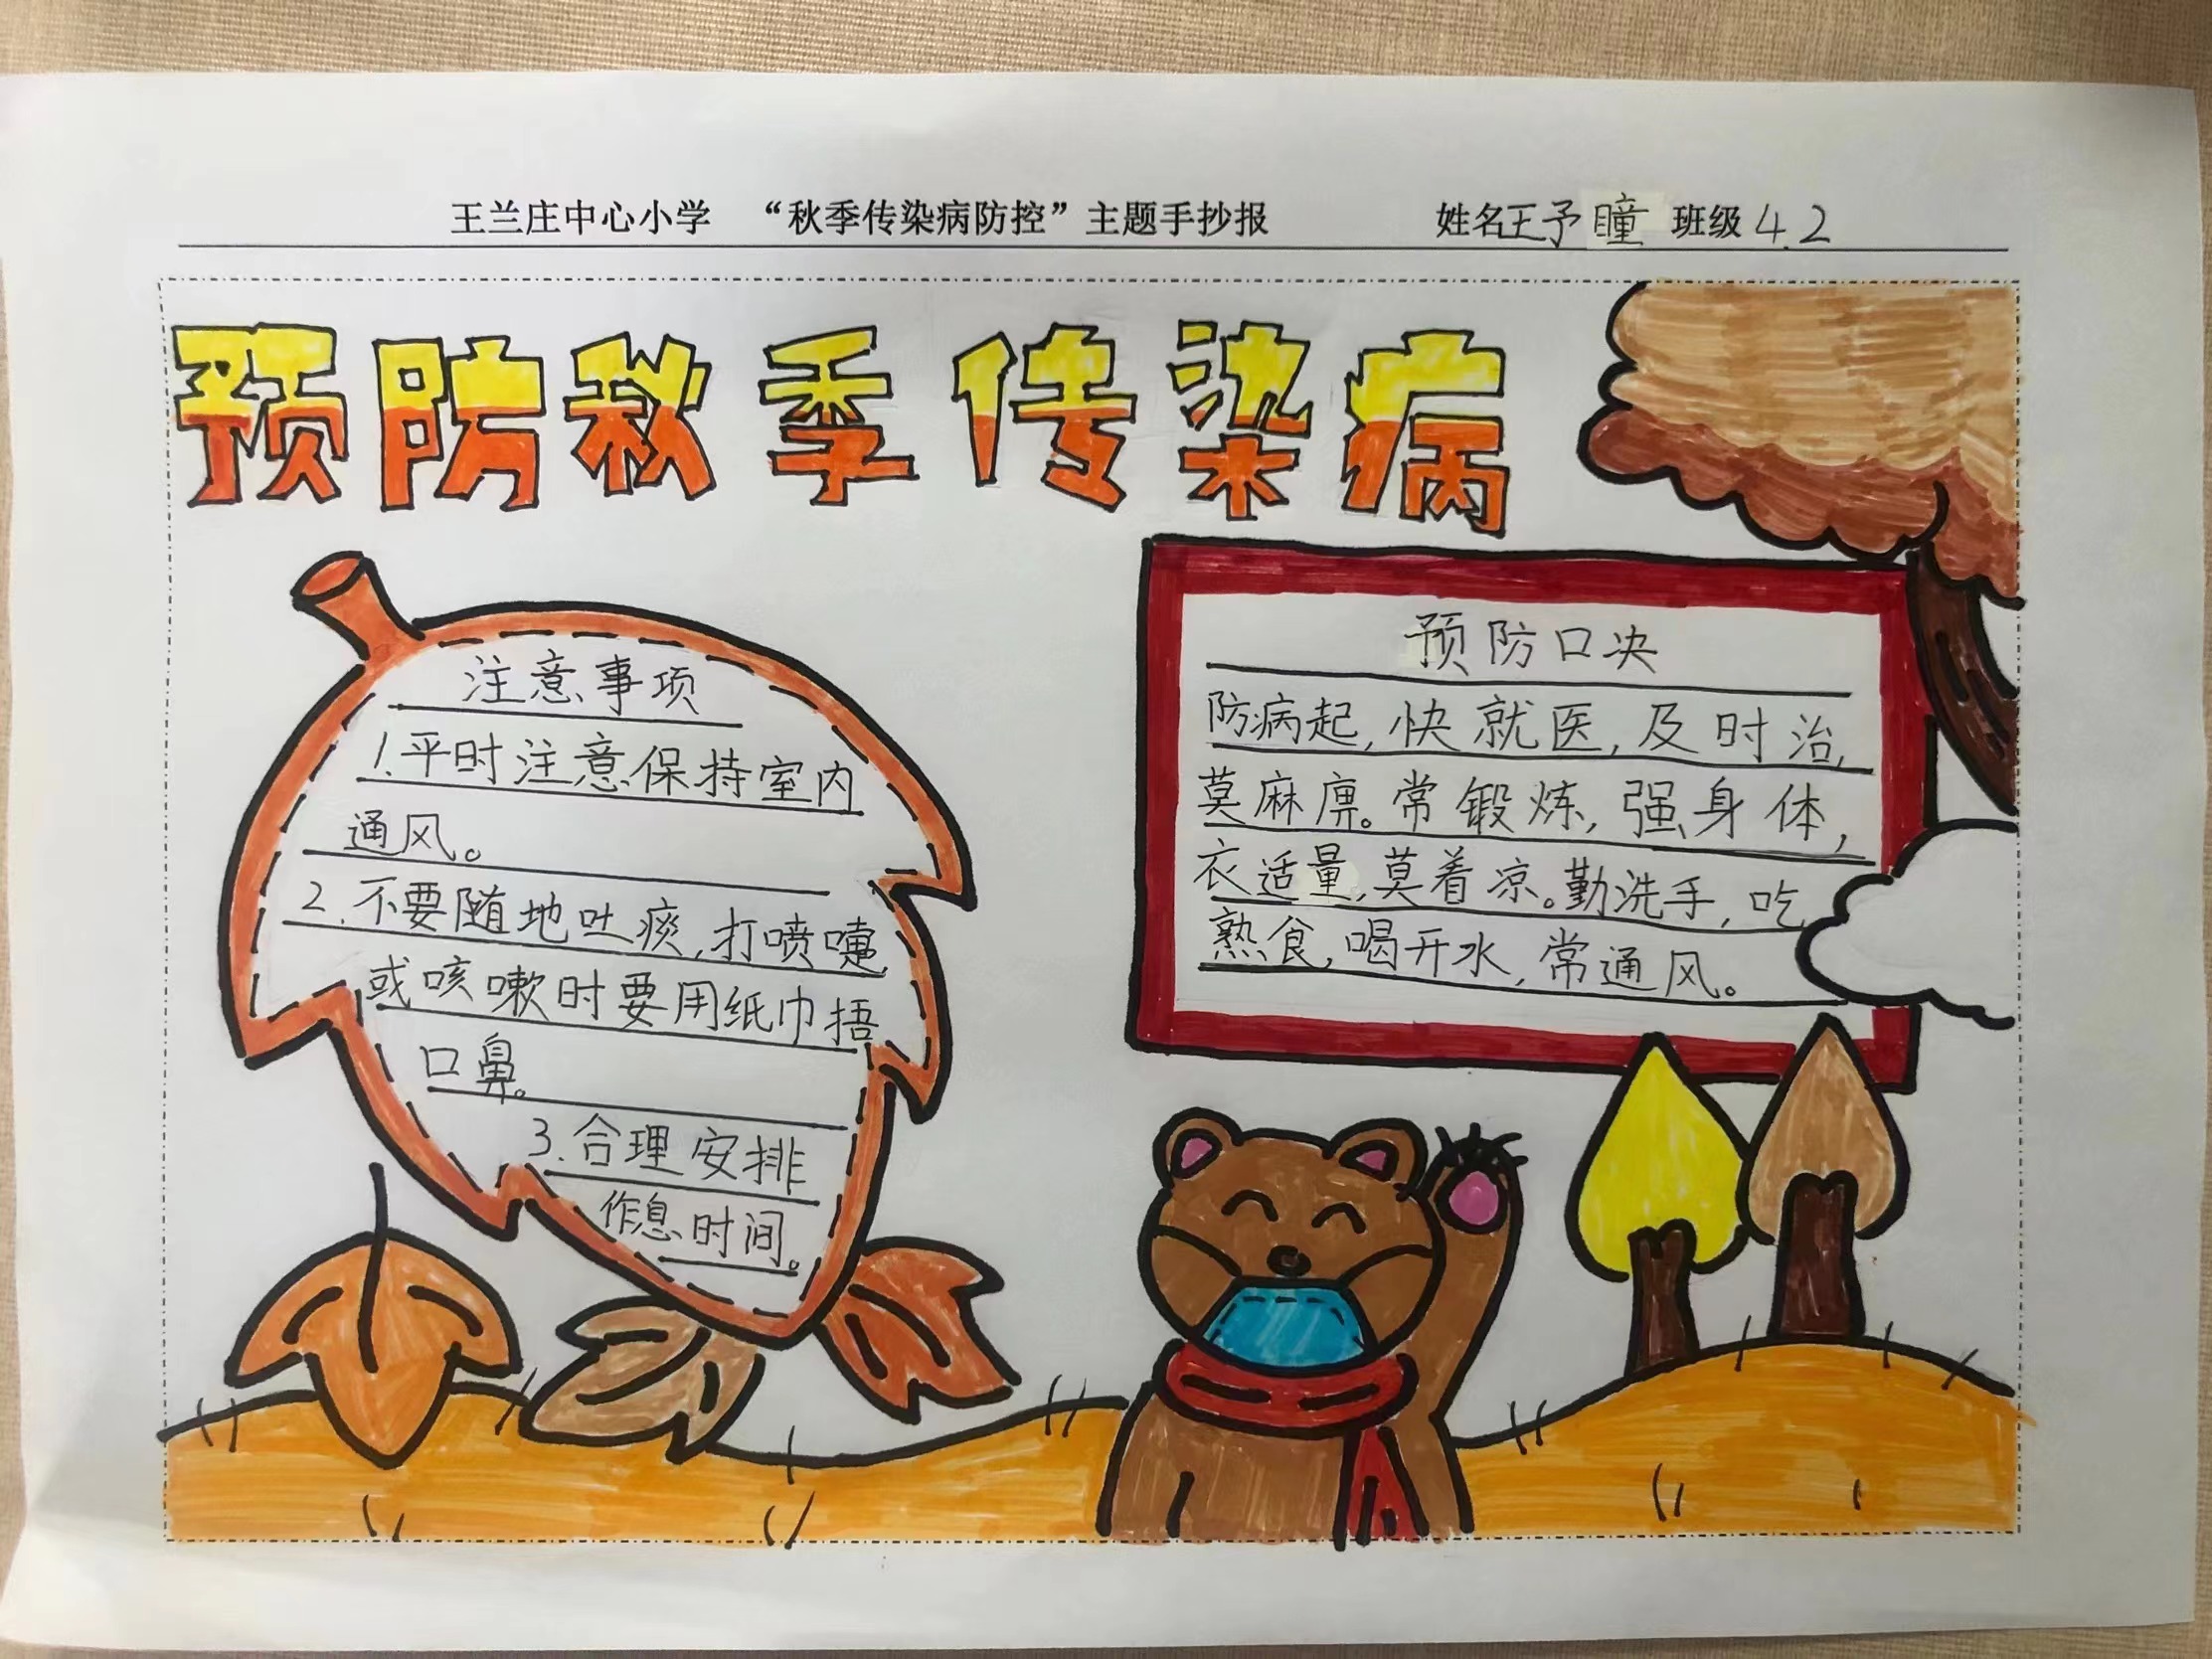 王兰庄中心小学 “秋季传染病防控”主题手抄报 姓名王予瞳 班级4.2
预防秋季传染病
注意事项
1.平时注意保持室内
通风。
2.不要随地吐痰,打喷嚏
或咳嗽时要用纸巾捂
口鼻。
3.合理安排
作息时间。
预防口决
防病起,快就医,及时治,
莫麻痹。常锻炼,强身体,
衣适量,莫着凉。勤洗手,吃
熟食,喝开水,常通风。